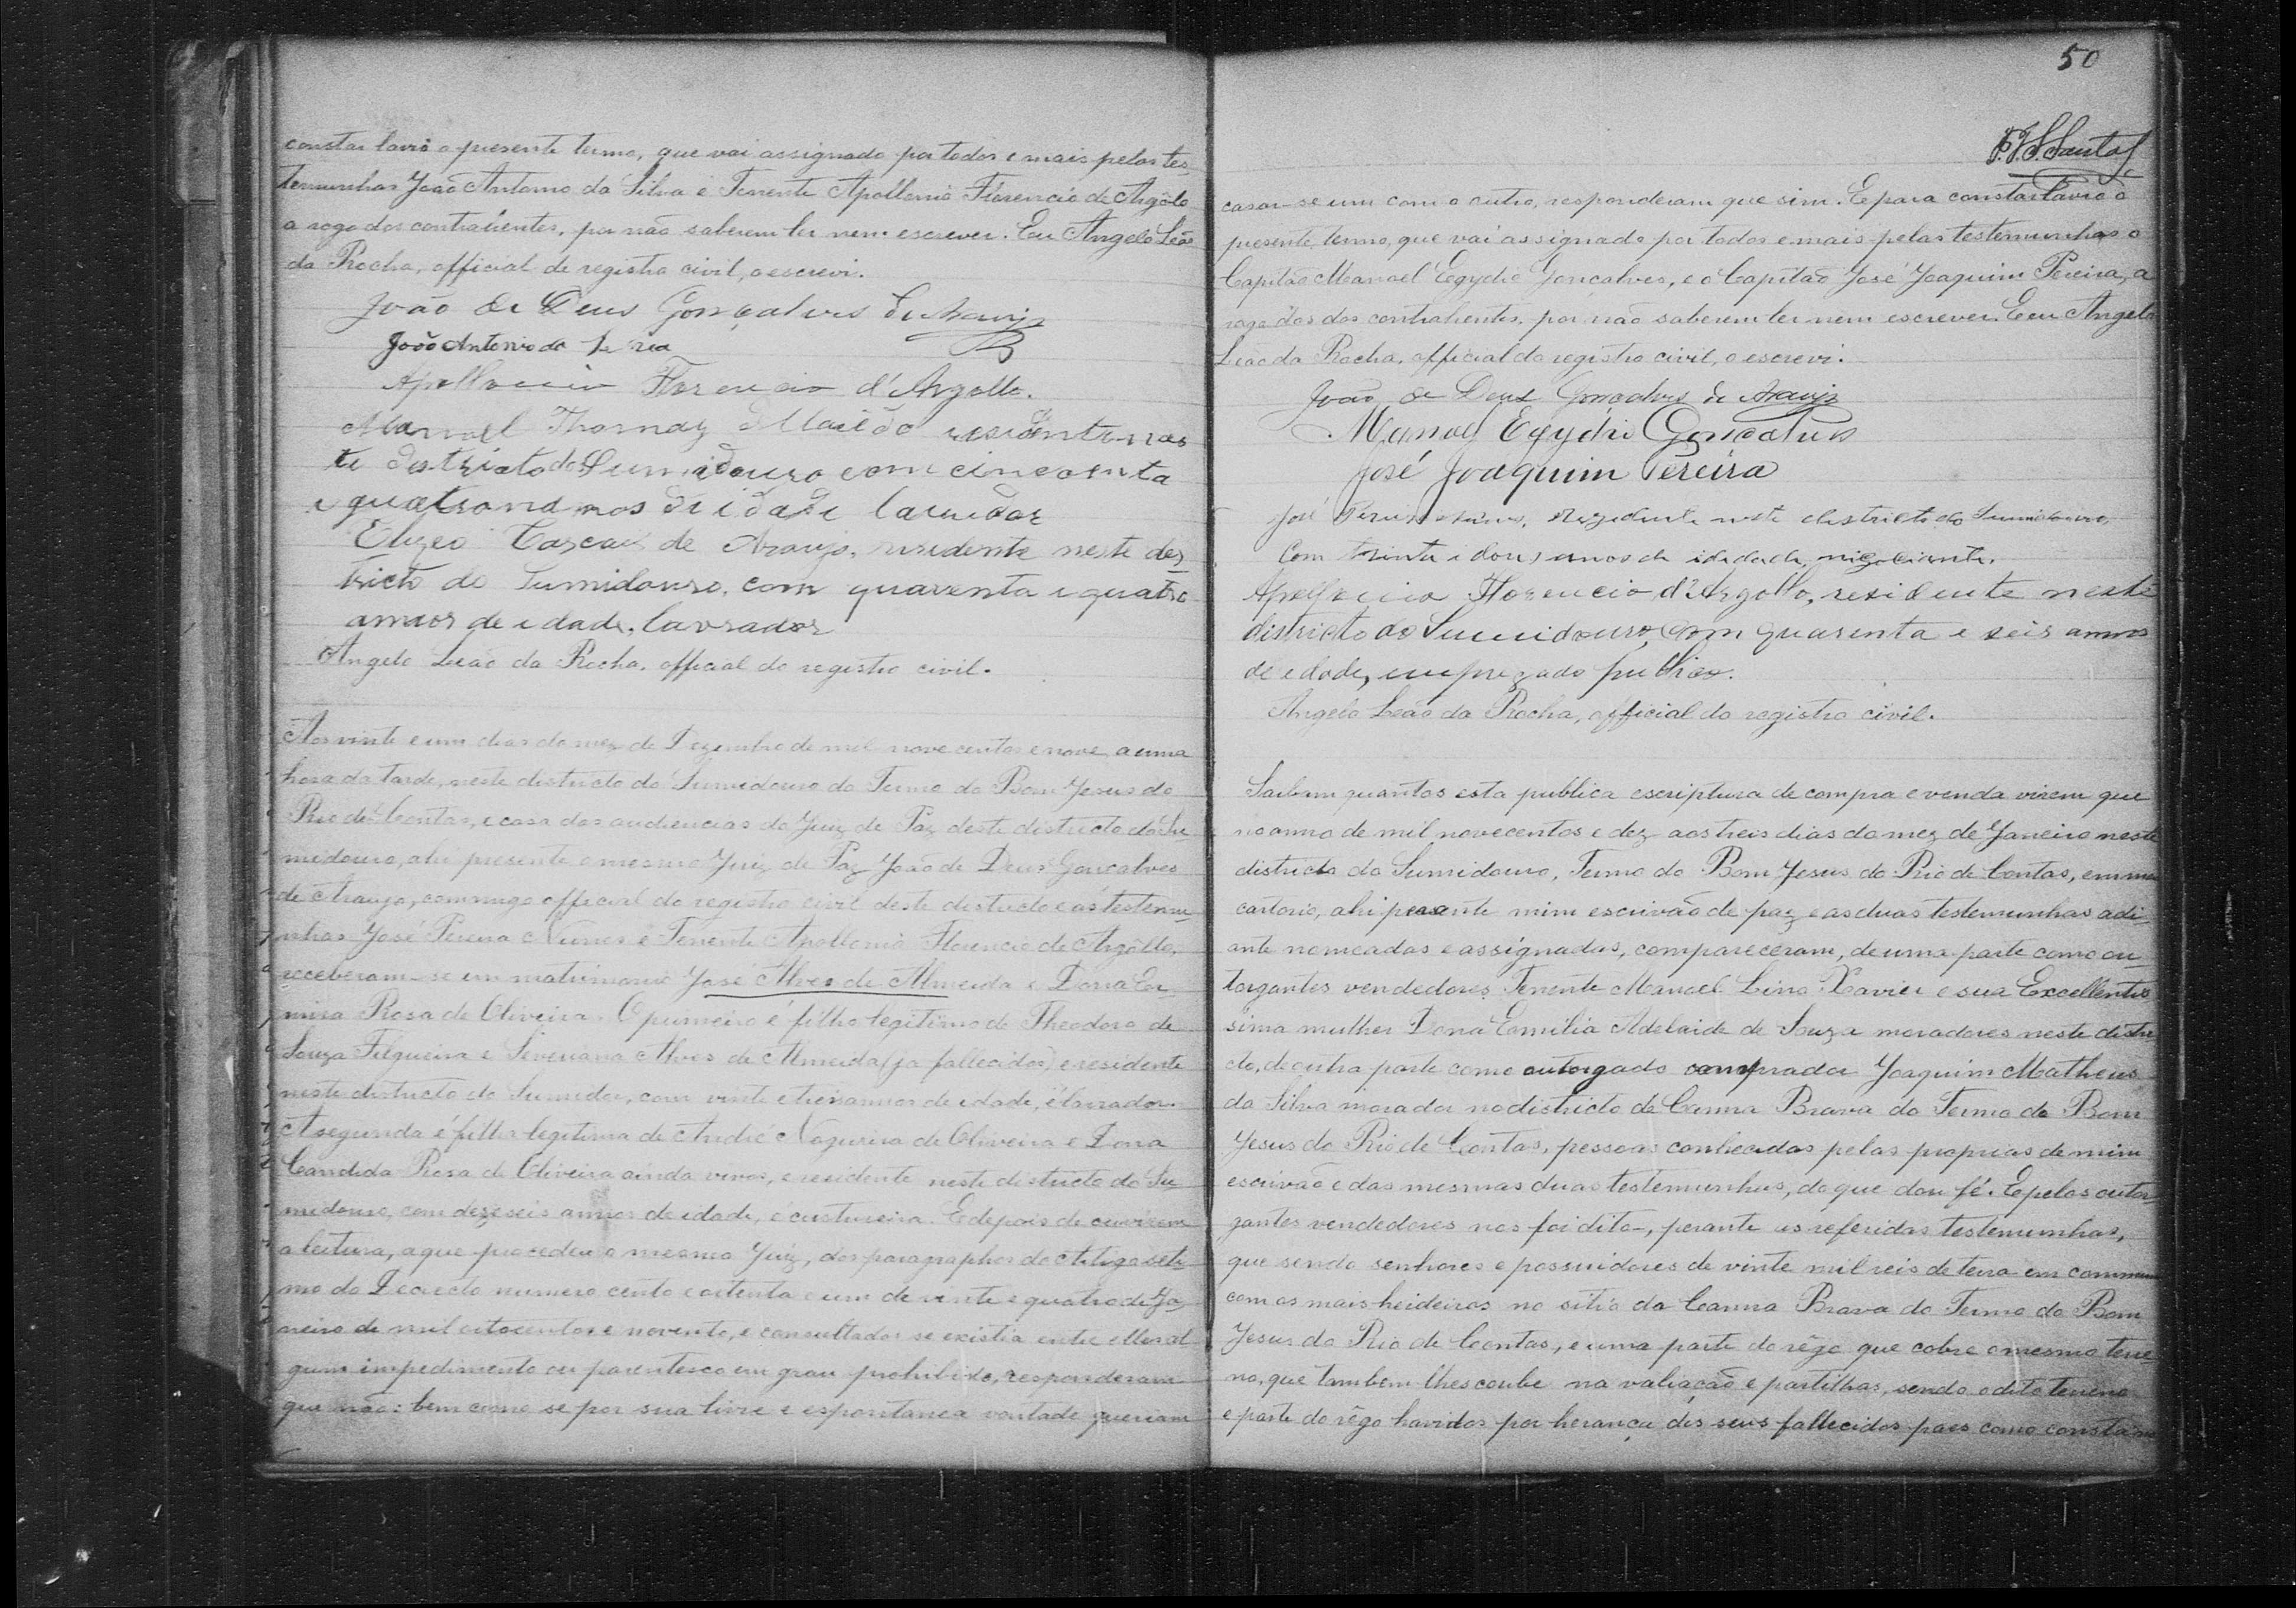 constar lavro o presente termo, que vai assignado por todos e mais pelas tes-
temunhas João Antonio da Silva e Tenente Apollonio Florencio de Argôlo
a rogo dos contrahentes, por não saberem ler nem escrever. Eu Angelo Leão
da Rocha, official de registro civil, o escrevi.
João de Deus Gonçalves de Araujo
João Antonio da
Apollonio Florencio d'Argollo.
Manoel Thomaz residente nes
te districto do Sumidouro com cincoenta
e quatro annos de idade lavrador
Elizeo Cascaes de Araujo, residente neste des
tricto do Sumidouro, com quarenta e quatro
annos de edade, lavrador
Angelo Leão da Rocha, official do registro civil.
Aos vinte e um dias do mez de Dezembro de mil nove centos e nove, a uma
hora da tarde, neste districto do Sumidouro do Termo do Bom Jesus do
Rio de Contas, e casa das audiencias do Juiz de Paz deste districto do Su-
midouro, ahi presente o mesmo Juiz de Paz João de Deus Gonçalves
de Araujo, commigo official do registro civil deste districto e as testemu-
nhas José Pereira Nunes e Tenente Apollonio Florencio de Argôllo,
receberam-se em matrimonio José Alves de Almeida e Dona
mira Rosa de Oliveira. O primeiro é filho legitimo de Theodoro de
Souza Filgueira e Severiana Alves de Almeida (ja fallecidos) e residente
neste districto do Sumidor, com vinte e tres annos de edade, é lavrador.
A segunda é filha legitima de André Nogueira de Oliveira e Dona
Candida Rosa de Oliveira ainda vivos, e residente neste districto do Su-
midouro, com dezeseis annos de edade, é custureira. E depois de ouvirem
a leitura, a que procedeu o mesmo Juiz, dos paragraphos do Artigo seti-
mo do Decreto numero cento e oitenta e um de vinte e quatro de Ja-
neiro de mil oitocentos e noventa, e consultados se existia entre elles al-
gum impedimento ou parentesco em grau prohibido, responderam
que não: bem como se por sua livre e espontanea vontade queriam
50
Santos
casar-se um com o outro, responderam que sim. E para constar lavro o
presente termo, que vai assignado por todos e mais pelas testemunhas o
Capitão Manoel Egydio Gonçalves, e o Capitão José Joaquim Pereira, a
rogo dos dos contrahentes, por não saberem ler nem escrever. E eu Angelo
Leão da Rocha, official do registro civil, o escrevi.
João de Deus Gonçalves de Araujo
Manoel Egydio Gonçalves
José Joaquim Pereira
José Pereira Nunes, rezidente neste districto do Sumidouro,
Com trinta e dous annos de idade, negociante.
Apollonio Florencio d'Argollo, residente neste
districto do Sumidouro, com quarenta e seis annos
de edade, empregado publico.
Angelo Leão da Rocha, official do registro civil.
Saibam quantos esta publica escriptura de compra e venda virem que
no anno de mil novecentos e dez aos treis dias do mez de Janeiro neste
districto do Sumidouro, Termo do Bom Jesus do Rio de Contas, em meu
cartorio, ahi perante mim escrivão de paz e as duas testemunhas adi-
ante nomeadas e assignadas, compareceram, de uma parte como ou-
torgantes vendedores Tenente Manoel Lino Xavier e sua Excellentis
sima mulher Dona Emilia Adelaide de Souza moradores neste distri
cto, de outra parte como outorgado comprador Joaquim Matheus
da Silva morador no districto da Canna Brava do Termo do Bom
Jesus do Rio de Contas, pessoas conhecidas pelas proprias de mim
escrivão e das mesmas duas testemunhas, do que dou fé. E pelos outor
gantes vendedores nos foi dito, perante as referidas testemunhas,
que sendo senhores e possuidores de vinte mil reis de terra em commum
com os mais heideiros no sitio da Canna Brava do Termo do Bom
Jesus do Rio de Contas, e uma parte do rêgo que cobre o mesmo terre
no, que tambem lhes coube na valiação e partilhas, sendo o dito terreno
e parte do rêgo havidos por herança dos seus fallecidos paes como consta